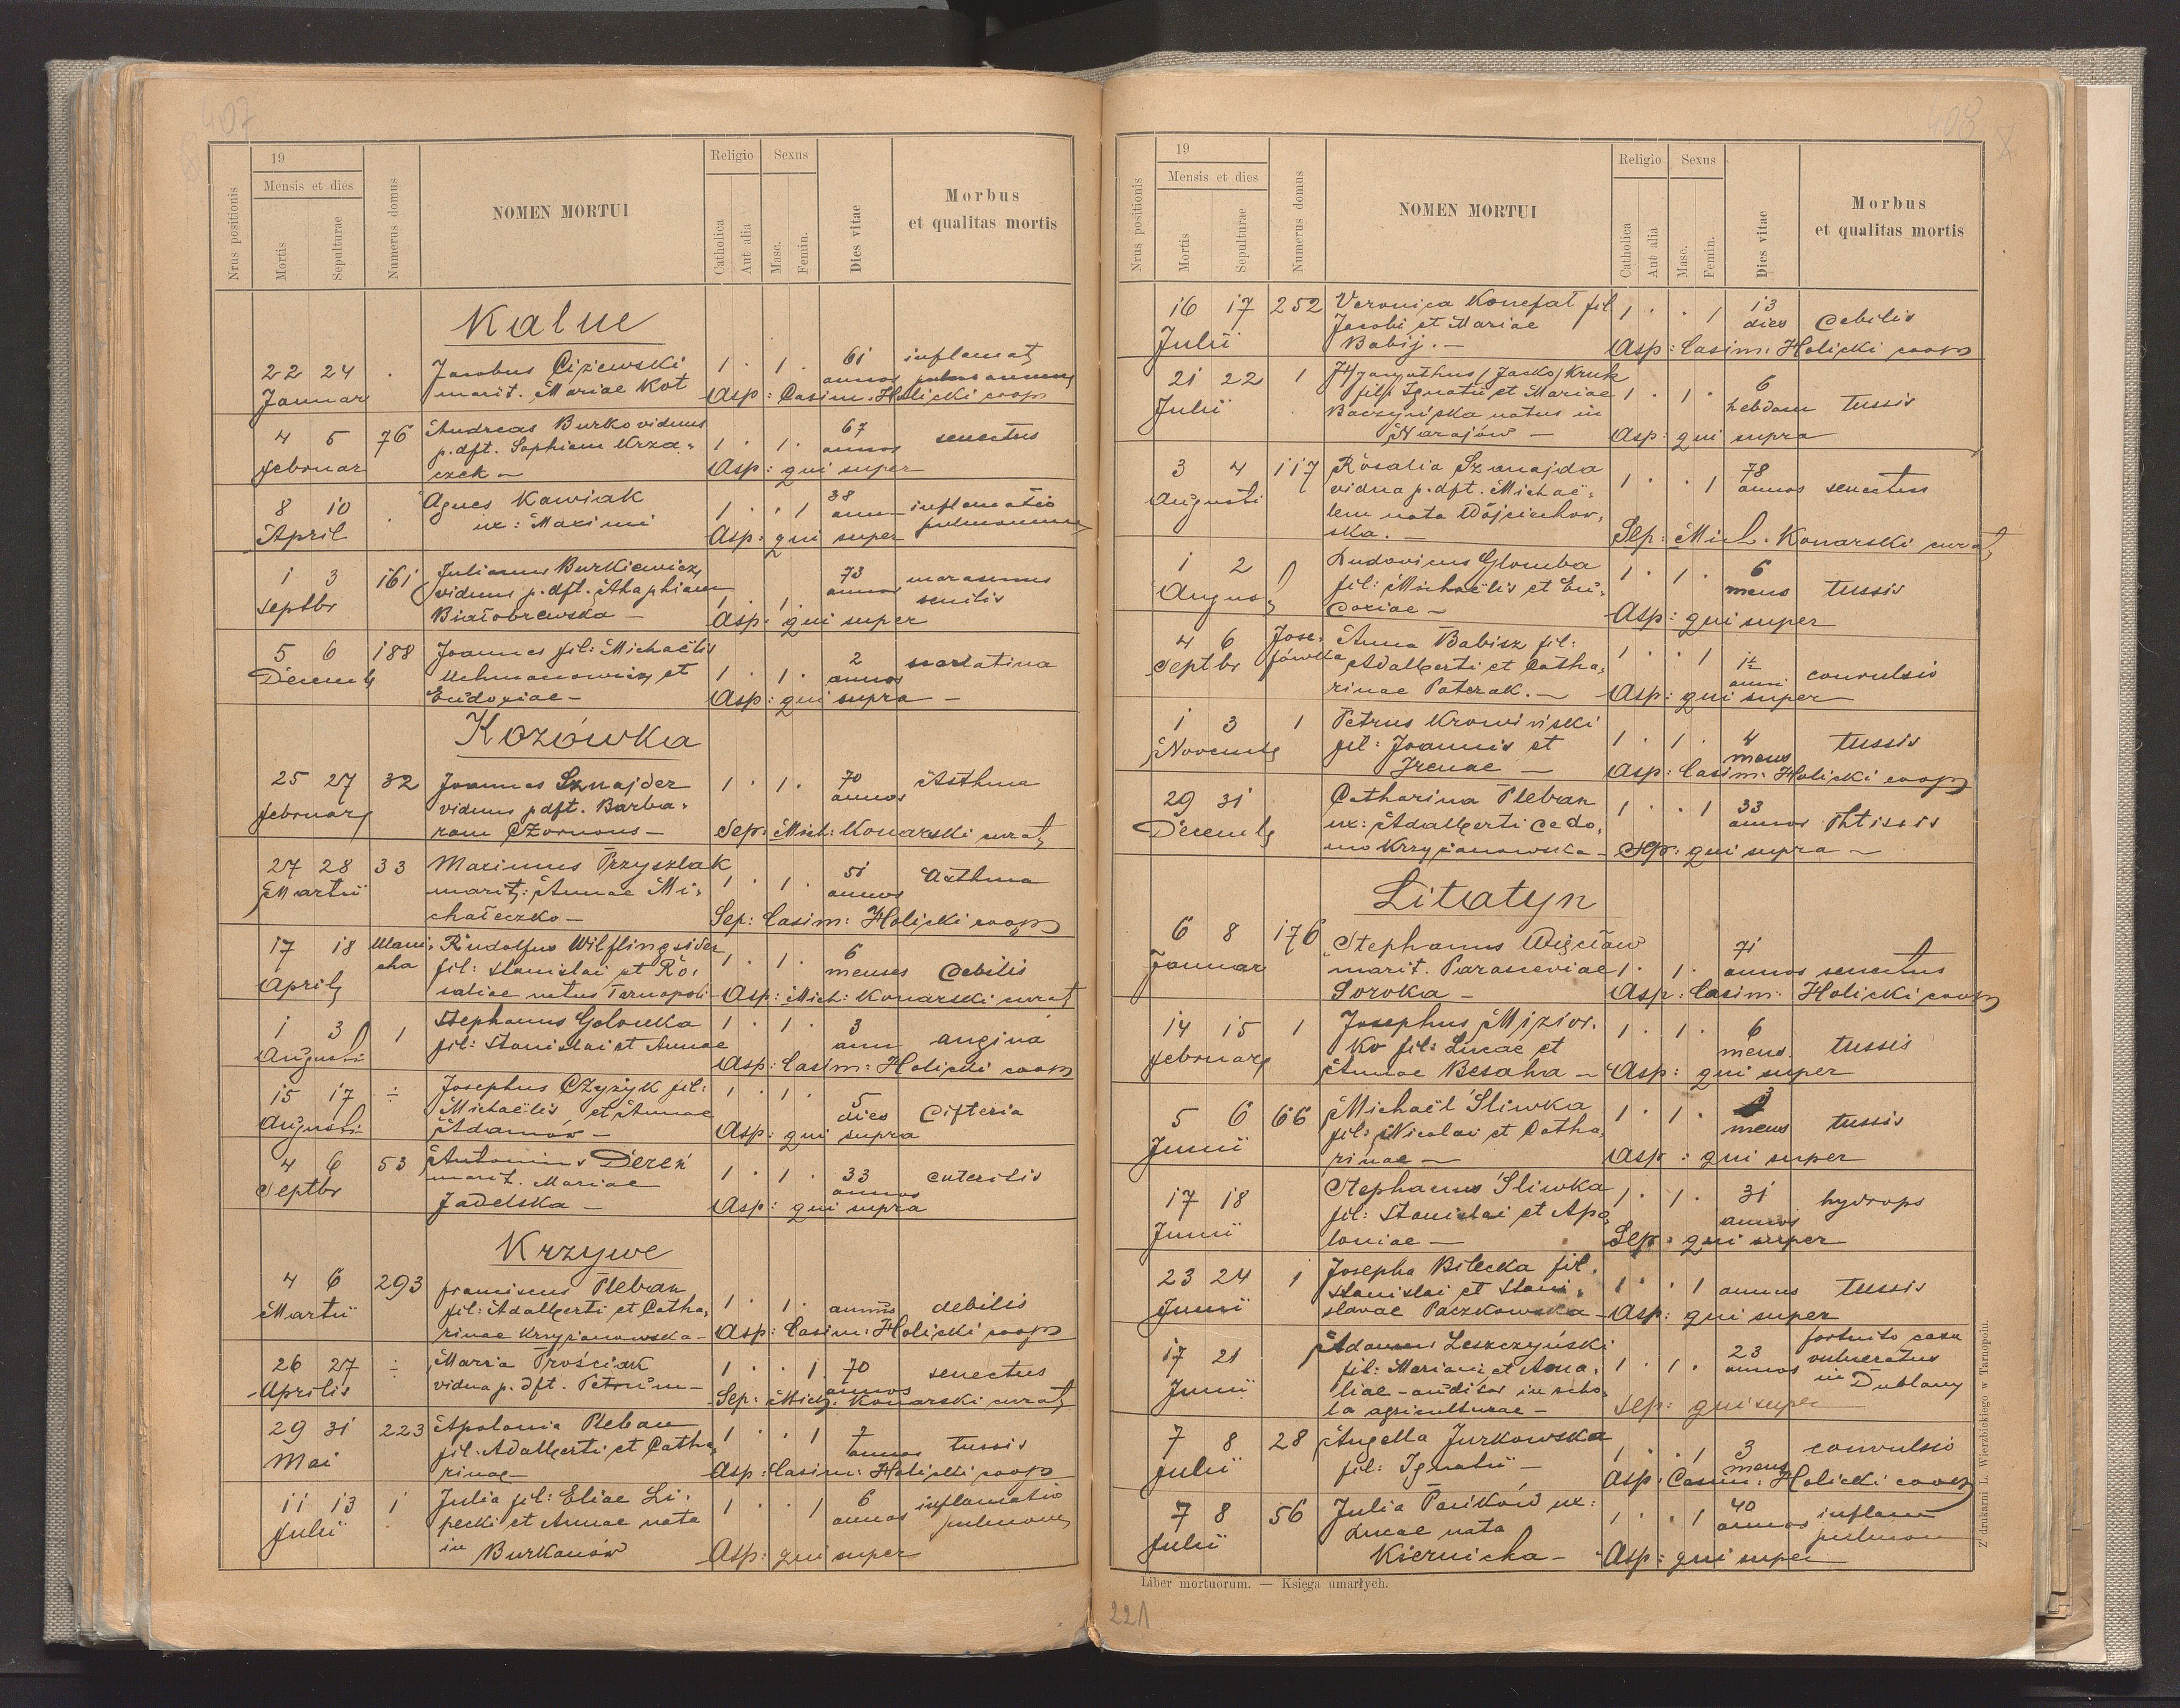 407
19
Religio
Sexus
Mensis et dies
Nrus positionis
Mortis
Sepulturae
Numerus domus
NOMEN MORTUI
Catholica
Aut alia
Masc.
Femin.
Dies vitae
Morbus
et qualitas mortis
Kalne
22 24 . Jacobus Ciżewski 1 . 1 . 61 inflamat
Januar marit. Mariae Kot annos
Asp: Casim. Holicki coop
4 5 76 Andreas Burko viduus 1 . 1 . 67 senectus
Februar p. dft. Sophiam Krza- annos
czek - Asp: qui super
8 10 . Agnes Kawiak 1 . . 1 38 inflamatio
April ux: Maximi ann pulmonum
Asp: qui super
1 3 161 Julianus Burkiewicz 1 . 1 . 73 marasmus
Septbr viduus p. dft. Agaphiam annos senilis
Białobrewska - Asp: qui super
5 6 188 Joannes fil: Michaëlis 1 . 1 . 2 scarlatina
Decemb Uchmanowicz et annos
Eudoxiae - Asp: qui supra -
Kozówka
25 27 32 Joannes Sznajder 1 . 1 . 70 Asthma
Februar viduus p dft. Barba- annos
ram Czornous - Sep: Mich: Konarski curat
27 28 33 Maximus Przyszlak 1 . 1 . 51 Asthma
Martii marit: Annae Mi- annos
chałeczko - Sep: Casim: Holicki coop
17 18 Rudolfus Wilflingsider 1 . 1 . 6 debilis
April fil: Stanislai et Ro- menses
saliae natus Tarnopoli - Asp: Mich: Konarski curat
1 3 1 Stephanus Golouka 1 . 1 . 3 angina
Augusti fil: Stanislai et Annae ann
Asp: Casim: Holicki coop
15 17 ÷ Josephus Czyżyk fil: 1 . 1 . 5 Difteria
Augusti Michaëlis et Annae dies
Adamów - Asp: qui supra
4 6 53 Antonius Dereń 1 . 1 . 33 enteritis
Septbr marit. Mariae annos
Jadelska - Asp: qui supra
Krzywe
4 6 293 Franciscus Pleban 1 . 1 . annus debilis
Martii fil: Adalberti et Catha-
rinae Krzyżanowska - Asp: Casim: Holicki coop
26 27 ÷ Maria Prościak 1 . . 1 70 senectus
Aprilis vidua p. dft. Petrum - annos
Sep: Mich. Konarski curat
29 31 223 Apolonia Pleban 1 . . 1 2 tussis
Mai fil: Adalberti et Catha- annos
rinae Asp: Casim: Holicki coop
11 13 1 Julia fil: Eliae Li- 1 . . 1 6 inflamatio
Julii pecki et Annae nata annos pulmonum
in Burkanów Asp: qui super
408
X
19
Religio
Sexus
Mensis et dies
Nrus positionis
Mortis
Sepulturae
Numerus domus
NOMEN MORTUI
Catholica
Aut alia
Masc.
Femin.
Dies vitae
Morbus
et qualitas mortis
16 17 252 Veronica Konefał fil 1 . . 1 13 debilis
Julii Jacobi et Mariae dies
Babij. - Asp: Casim: Holicki coop
21 22 1 Hyacynthus (Jacko) Kruk 1 . 1 . 6 tussis
Julii fil: Ignatii et Mariae hebdom
Baczyńska natus in
Narajów - Asp: qui supra
3 4 117 Rosalia Sznajda 1 . . 1 78 senectus
Augusti vidua p. dft. Michaë- annos
lem nata Wójciechow-
ska. - Sep: Mich. Konarski curat
1 2 Ludovicus Glomba 1 . 1 . 6 tussis
August fil: Michaëlis et Eu- mens
doxiae - Asp: qui super
4 6 Jose- Anna Babisz fil: 1 . . 1 1½ convulsio
Septbr fówka Adalberti et Catha- anni
rinae Paterak. - Asp: qui super
1 3 1 Petrus Krowiński 1 . 1 . 4 tussis
Novemb fil: Joannis et mens
Irenae - Asp: Casim: Holicki coop
29 31 Catharina Pleban 1 . . 1 33 Phtisis
Decemb ux: Adalberti de do- annos
mo Krzyżanowska - Sep: qui supra -
Litiatyn
6 8 176 Stephanus Więcław 1 . 1 . 71 senectus
Januar marit. Parasceviae annos
Soroka - Asp: Casim: Holicki coop
14 15 1 Josephus Mizior- 1 . 1 . 6 tussis
Februar ko fil: Lucae et mens.
Annae Besaha - Asp: qui super
5 6 66 Michaël Śliwka 1 . 1 . 3 tussis
Junii fil: Nicolai et Catha- mens
rinae - Asp: qui super
17 18 Stephanus Śliwka 1 . 1 . 31 hydrops
Junii fil: Stanislai et Apo- annos
loniae - Sep: qui super
23 24 1 Josepha Bilecka fil. 1 . . 1 annus tussis
Junii Stanislai et Stani-
slavae Paczkowska - Asp: qui super
17 21 Adamus Leszczyński 1 . 1 . 23 fortuito casu
Junii fil: Mariani et Ama- annos vulneratus
liae - auditor in scho- in Dublany
la agriculturae - Sep: qui super
7 8 28 Angella Jurkowska 1 . . 1 3 convulsio
Julii fil: Ignatii - mens
Asp: Casim: Holicki coop
7 8 56 Julia Pańków ux: 1 . . 1 40 inflam
Julii Lucae nata annos pulmon
Kiernicka - Asp: qui super
Z drukarni L. Wierzbickiego w Tarnopolu.
Liber mortuorum. — Księga umarłych.
221